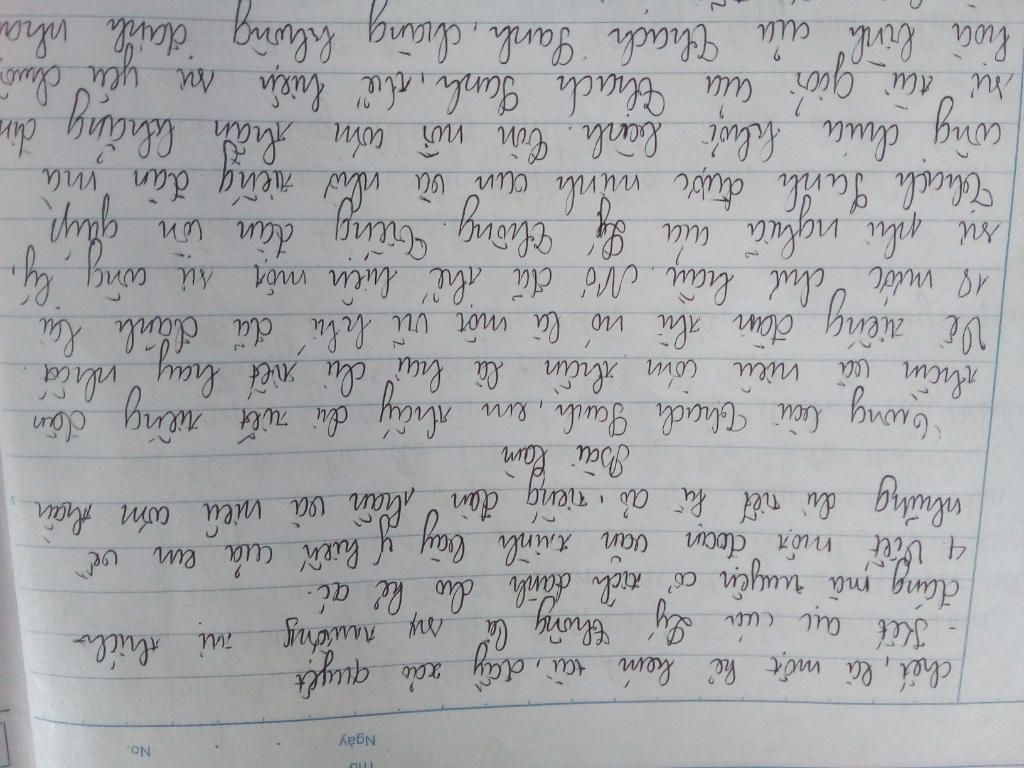 Thứ
Ngày No.
chết, là một kẻ kém tài, đầy xảo quyệt
- Kết cục của Lý Thông là sự trừng trị thích
đáng mà truyện cổ tích dành cho kẻ ác.
4. Viết một đoạn văn trình bày ý kiến của em về
những chi tiết kì ảo, tiếng đàn thần và niêu cơm thần
Bài làm
Trong bài Thạch Sanh, em thấy chi tiết tiếng đàn
thần và niêu cơm thần là hai chi tiết hay nhất.
Về tiếng đàn thì nó là một vũ khí đã đánh lui
18 nước chư hầu. Nó đã thể hiện một sự công lý,
sự phi nghĩa của Lý Thông. Tiếng đàn còn giúp
Thạch Sanh được minh oan và nhờ tiếng đàn mà
công chúa khỏi bệnh. Còn nồi cơm thần khẳng địn
sự tài giỏi của Thạch Sanh, thể hiện sự yêu chuộ
hoà bình của Thạch Sanh, chàng không đánh nhau